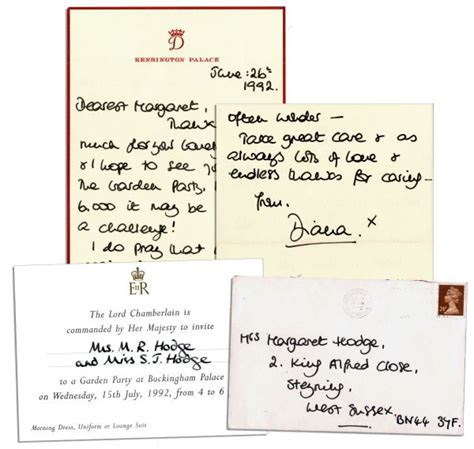 D
KENSINGTON PALACE
June: 26th
1992.
Dearest Margaret,
Thank
much for your
& I hope to see
The Garden Party,
6,000 it may be
a challenge!
I do pray that
often wonder –
Take great care & as
always lots of love &
endless thanks for caring –
from,
Diana. x
EIIR
The Lord Chamberlain is
commanded by Her Majesty to invite
Mrs. M. R. Hodge
and Miss S. J. Hodge
to a Garden Party at Buckingham Palace
on Wednesday, 15th July, 1992, from 4 to 6
Morning Dress, Uniform or Lounge Suit
Mrs Margaret Hodge,
2. King Alfred Close,
Steyning,
West Sussex.
BN44 3YF.